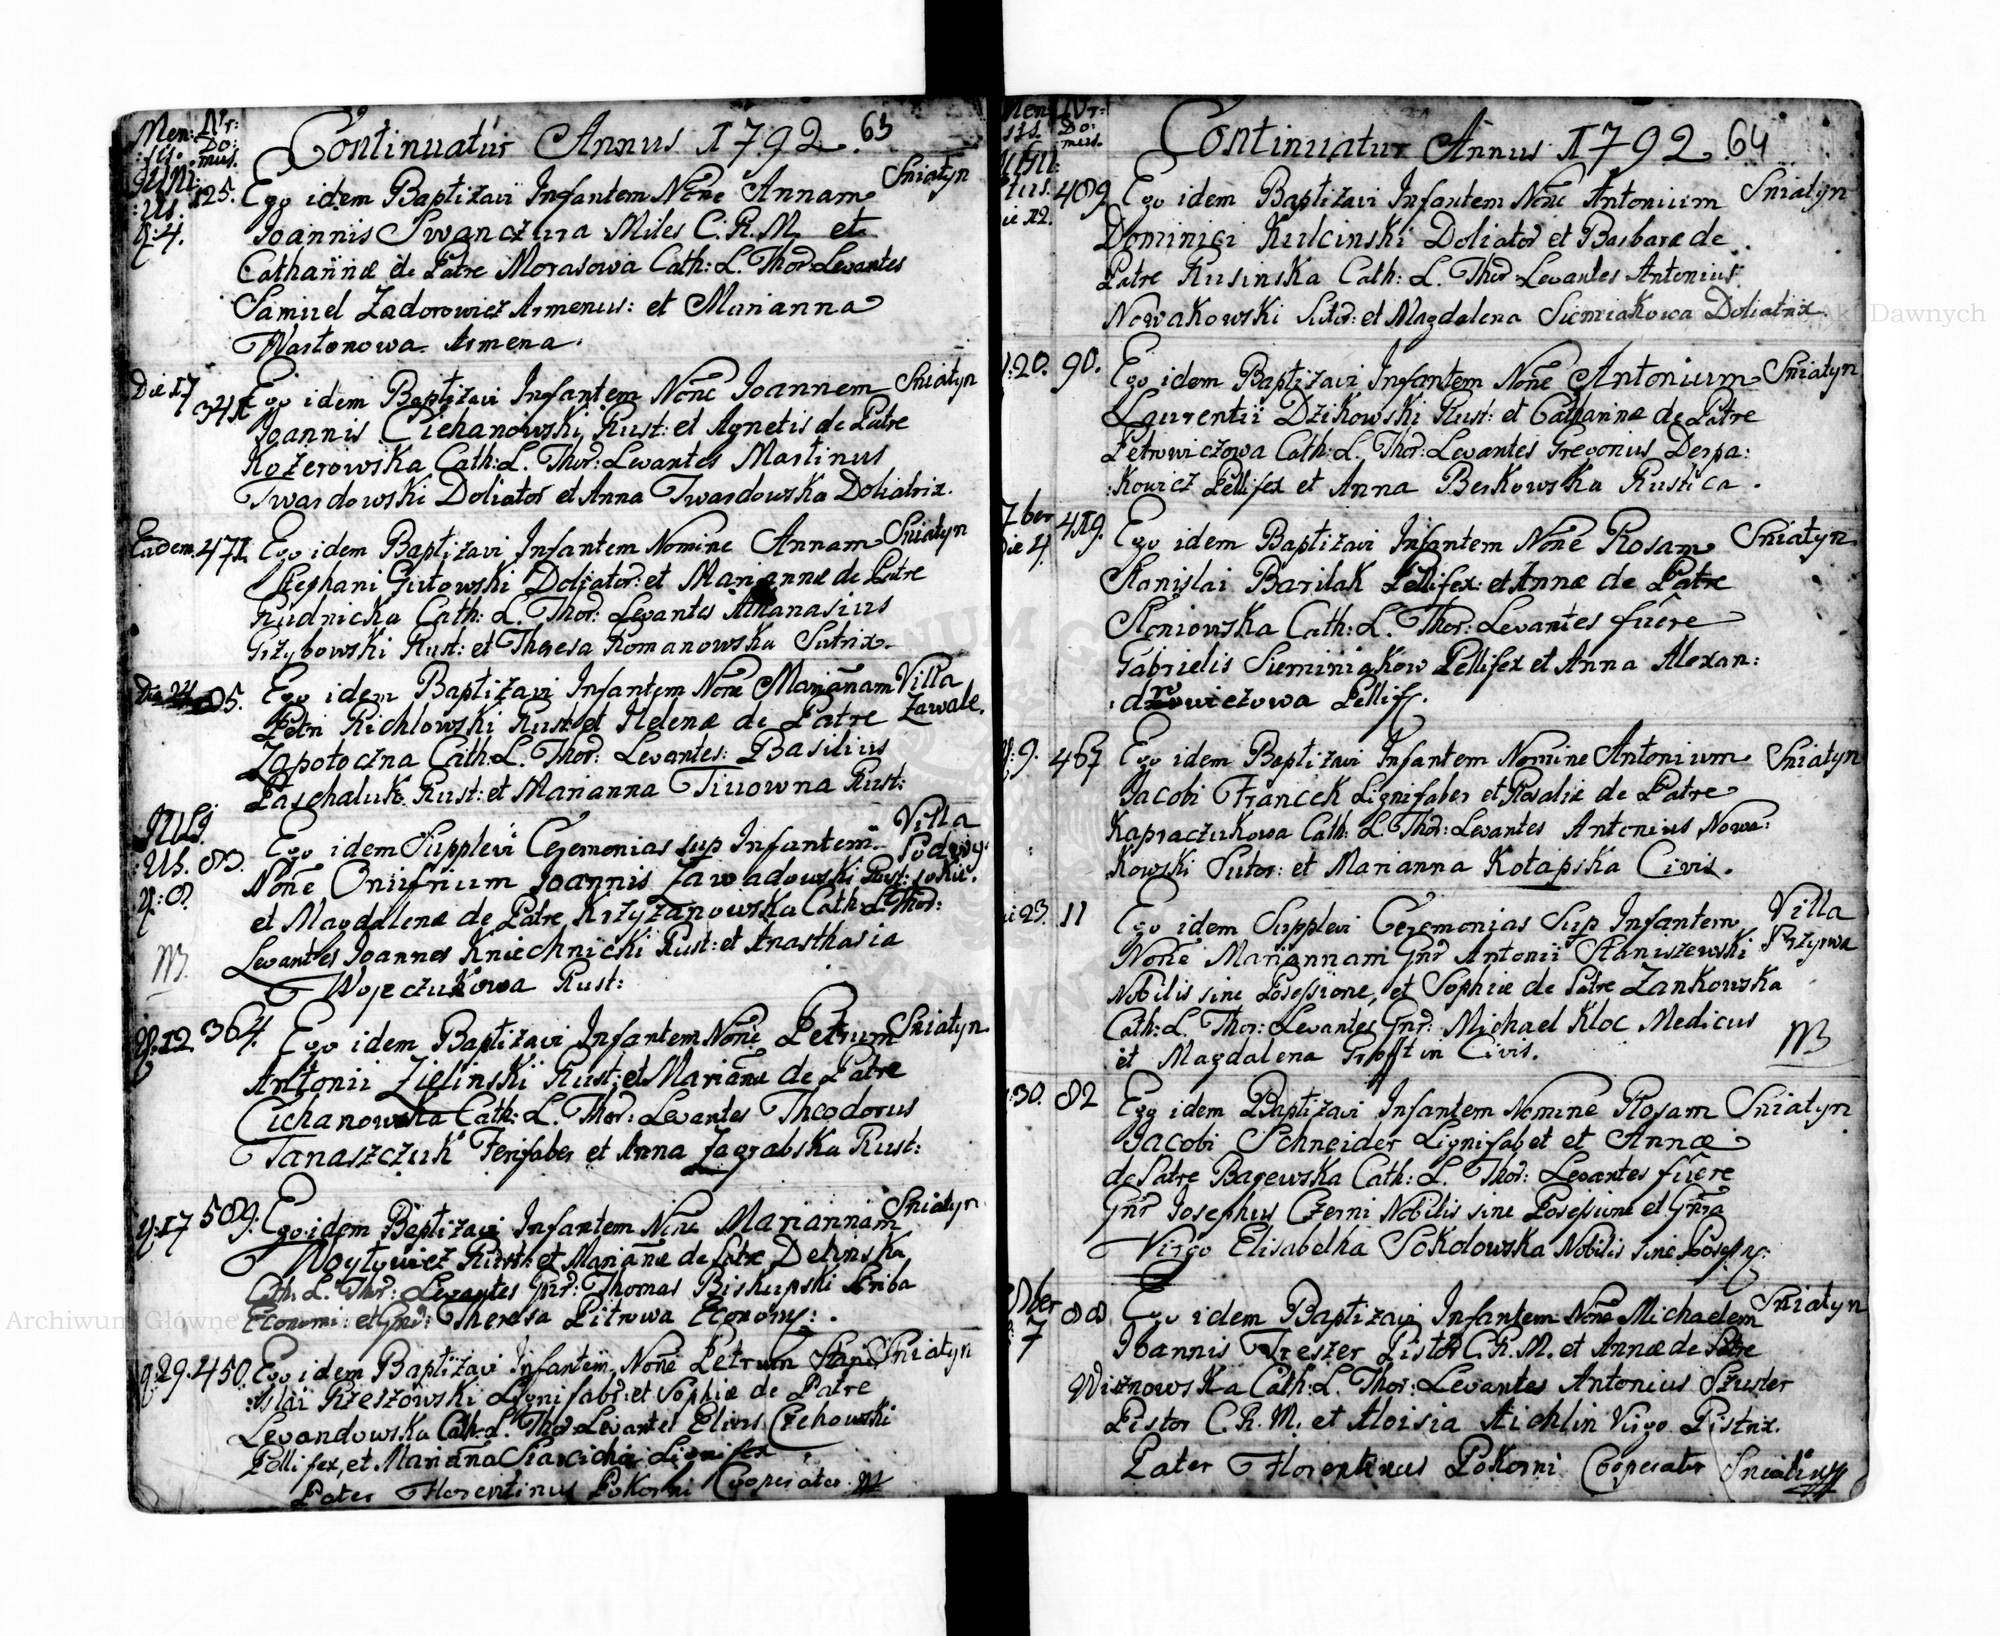 Men: Nr:
:sis. Do:
mus.
Continuatur Annus 1792. 63
Juni:
:us.
d: 4.
125. Ego idem Baptizavi Infantem None Annam Sniatyn
Joannis Swanczura Miles C.R.M. et
Catharinæ de Patre Morasowa Cath: L. Thor: Levantes
Samuel Zadorowicz Armenus: et Marianna
Wartonowa Armena.
Die 17 341 Ego idem Baptizavi Infantem None Joannem Sniatyn
Joannis Ciehanowski Rust: et Agnetis de Patre
Kozerowska Cath: L. Thor: Levantes Martinus
Twardowski Doliator et Anna Twardowska Doliatrix.
Eadem. 471. Ego idem Baptizavi Infantem Nomine Annam Sniatyn
Stephani Gutowski Doliator: et Mariannæ de Patre
Rudnicka Cath: L. Thor: Levantes Athanasius
Grzybowski Rust: et Theresa Romanowska Sutrix.
Die 85. Ego idem Baptizavi Infantem None Mariañam Villa
Petri Richlowski Rust: et Helenæ de Patre Zawale.
Zapotoczna Cath: L. Thor: Levantes: Basilius
Paschaluk Rust: et Marianna Tiuowna Rust:
Juli
:us. 83. Ego idem Supplevi Ceremonias sup Infantem Villa
d: 8. None Onufrium Joannis Zawadowski Rust:
et Magdalenæ de Patre Krzyzanowska Cath: L. Thor:
Levantes Joannes Kniechnicki Rust: et Anasthasia
Wojeczukowa Rust:
d: 12 364. Ego idem Baptizavi Infantem None Petrum Sniatyn
Antonii Zielinski Rust: et Mariañæ de Patre
Cichanowska Cath: L. Thor: Levantes Theodorus
Tanaszczuk Ferifaber et Anna Zagrabska Rust:
d: 17 589. Ego idem Baptizavi Infantem None Mariannam Sniatyn
Woytowicz Rust: et Mariañæ de Patre
Cath: L. Thor: Levantes Gnr: Thomas Biskupski Scriba
Economi: et Gnr: Theresa Pitrowa Economy: .
d: 29. 450. Ego idem Baptizavi Infantem None Petrum Stani Sniatyn
:slai Rzeszowski Lignifabr: et Sophiæ de Patre
Levandowska Cath: L. Thor: Levantes Elias Czehowski
Pellifex, et Mariaña
Pater Florentinus Pokorni Cooperator
Men Nr:
sis. Do:
mus.
Continuatur Annus 1792. 64
tus.
ie 12. 489 Ego idem Baptizavi Infantem None Antonium Sniatyn
Dominici Kulcinski Doliator et Barbaræ de
Patre Rusinska Cath: L. Thor: Levantes Antonius
Nowakowski Sutor: et Magdalena Siemiakowa Doliatrix.
:20. 90. Ego idem Baptizavi Infantem None Antonium Sniatyn
Laurentii Dzikowski Rust: et Catharinæ de Patre
Petrowiczowa Cath: L. Thor: Levantes Gregorius Derpa:
:kowicz Pellifex et Anna Berkowska Rustica.
7ber
Die 4 419. Ego idem Baptizavi Infantem None Rosam Sniatyn
Stanislai Barilak Pellifex: et Annæ de Patre
Sloniowska Cath: L. Thor: Levantes fuere
Gabrielis Sieminiakow Pellifex et Anna Alexan:
:drowiczowa Pellif.
d: 9. 467 Ego idem Baptizavi Infantem Nomine Antonium Sniatyn
Jacobi Francek Lignifaber et Rosaliæ de Patre
Kapraczukowa Cath: L. Thor: Levantes Antonius Nowa:
kowski Sutor: et Marianna Kotapska Civis.
23. 11 Ego idem Supplevi Ceremonias Sup Infantem Villa
None Mariannam Gnr Antonii Staniszewski
Nobilis sine Posessione, et Sophiæ de Patre Zankowska
Cath: L. Thor: Levantes Gnr: Michael Kloc Medicus
et Magdalena Civis.
:30. 82 Ego idem Baptizavi Infantem Nomine Rosam Sniatyn
Jacobi Schneider Lignifab et et Annæ
de Patre Barewska Cath: L. Thor: Levantes fuere
Gnr Josephus Czerni Nobilis sine Posessione et Gnra
Virgo Elisabetha Sokolowska Nobilis sine
8ber
7 88 Ego idem Baptizavi Infantem None Michaelem Sniatyn
Joannis Treszer Pistor C.R.M. et Annæ de Patre
Wisznowska Cath: L. Thor: Levantes Antonius Szuster
Pistor C.R.M. et Aloisia Aichlin Virgo Pistrix.
Pater Florentinus Pokorni Cooperator Sniatin
Archiwum Główne
Akt Dawnych